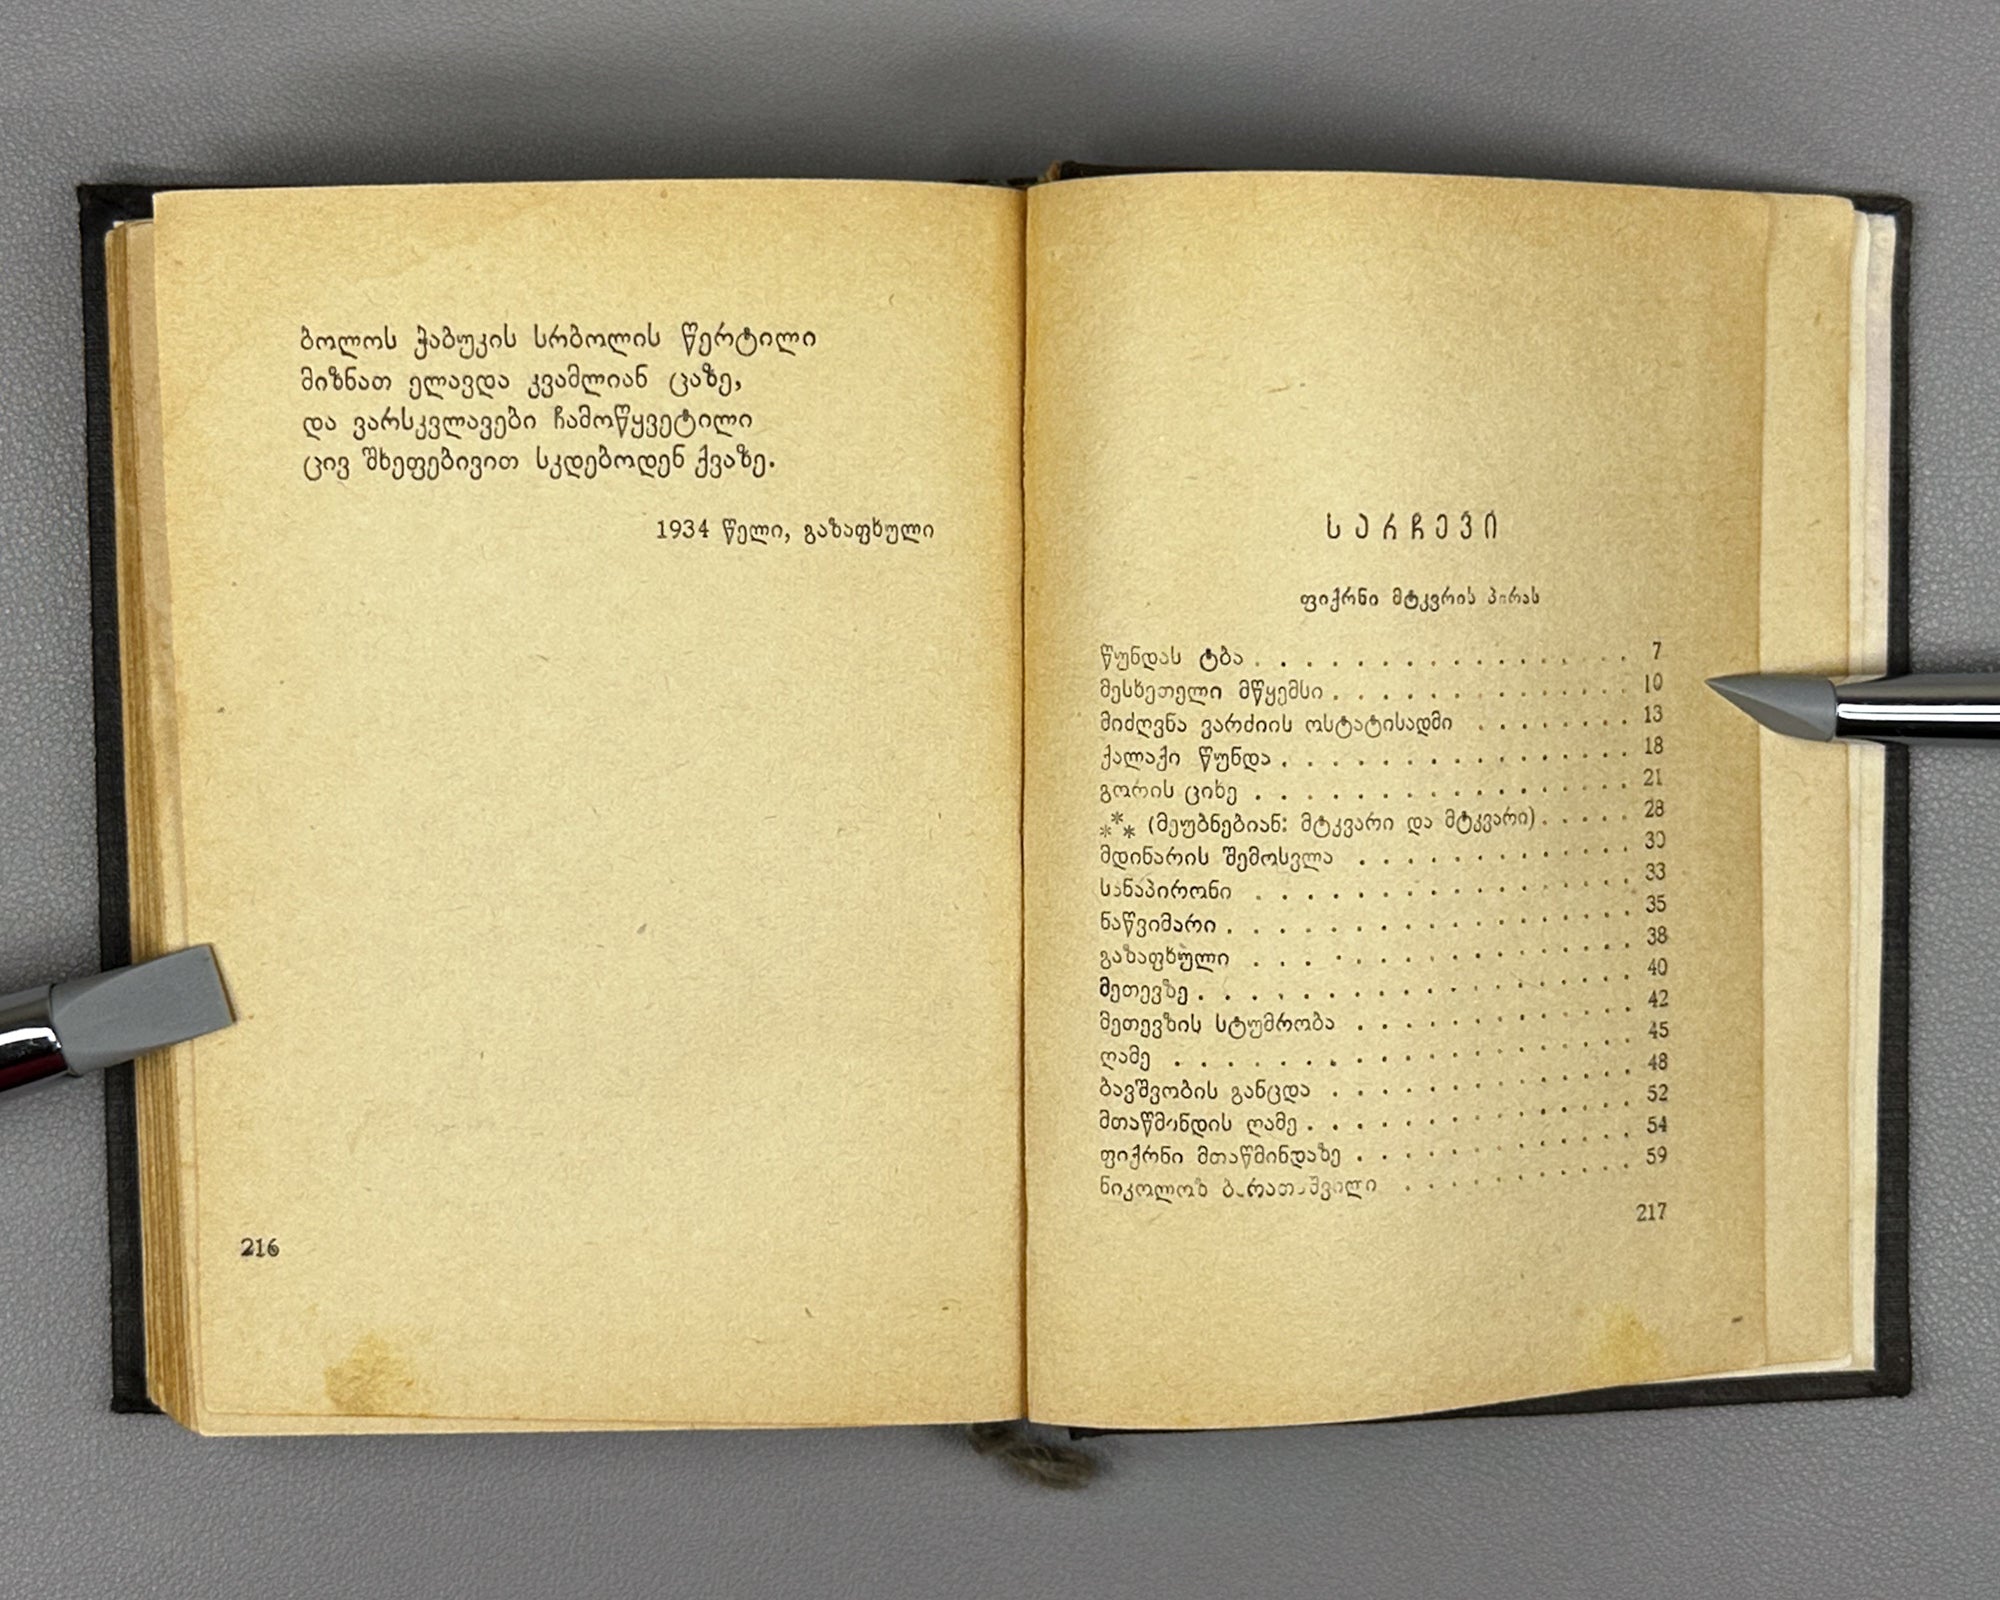 ბოლოს ჭაბუკის სრბოლის წერტილი
მიზნათ ელავდა კვამლიან ცაზე,
და ვარსკვლავები ჩამოწყვეტილი
ცივ შხეფებივით სკდებოდენ ქვაზე.
1934 წელი, გაზაფხული
216
სარჩევი
ფიქრნი მტკვრის პირას
წუნდას ტბა . . . . . . . . . . . . . . . 7
მესხეთელი მწყემსი . . . . . . . . . . . . 10
მიძღვნა ვარძიის ოსტატისადმი . . . . . . . 13
ქალაქი წუნდა . . . . . . . . . . . . . . 18
გორის ციხე . . . . . . . . . . . . . . . 21
*** (მეუბნებიან: მტკვარი და მტკვარი) . . . . . 28
მდინარის შემოსვლა . . . . . . . . . . . . 30
სანაპირონი . . . . . . . . . . . . . . . 33
ნაწვიმარი . . . . . . . . . . . . . . . . 35
გაზაფხული . . . . . . . . . . . . . . . 38
მეთევზე . . . . . . . . . . . . . . . . . 40
მეთევზის სტუმრობა . . . . . . . . . . . . 42
ღამე . . . . . . . . . . . . . . . . . . 45
ბავშვობის განცდა . . . . . . . . . . . . 48
მთაწმინდის ღამე . . . . . . . . . . . . . 52
ფიქრნი მთაწმინდაზე . . . . . . . . . . . 54
ნიკოლოზ ბარათაშვილი . . . . . . . . . . 59
217